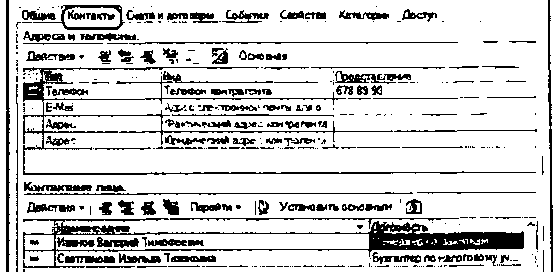 Общие Контакты Счета и договоры События Свойства Категории Доступ
Адреса и телефоны
Действия Основная
Тип Вид Представление
Телефон Телефон контрагента 678 89 90
E-Mail Адрес электронной почты для о
Адрес Фактический адрес контрагента
Адрес Юридический адрес контрагента
Контактные лица
Действия Перейти Установить основным
Должность
Иванов Валерий Тимофеевич
Светланова Изольда Тихоновна Бухгалтер по налоговому уч...